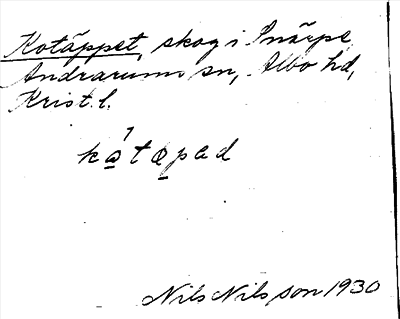 Kotäppet, skog i Snärpe
Andrarums sn, Albo hd,
Krist. l.
kátapad
Nils Nilsson 1930